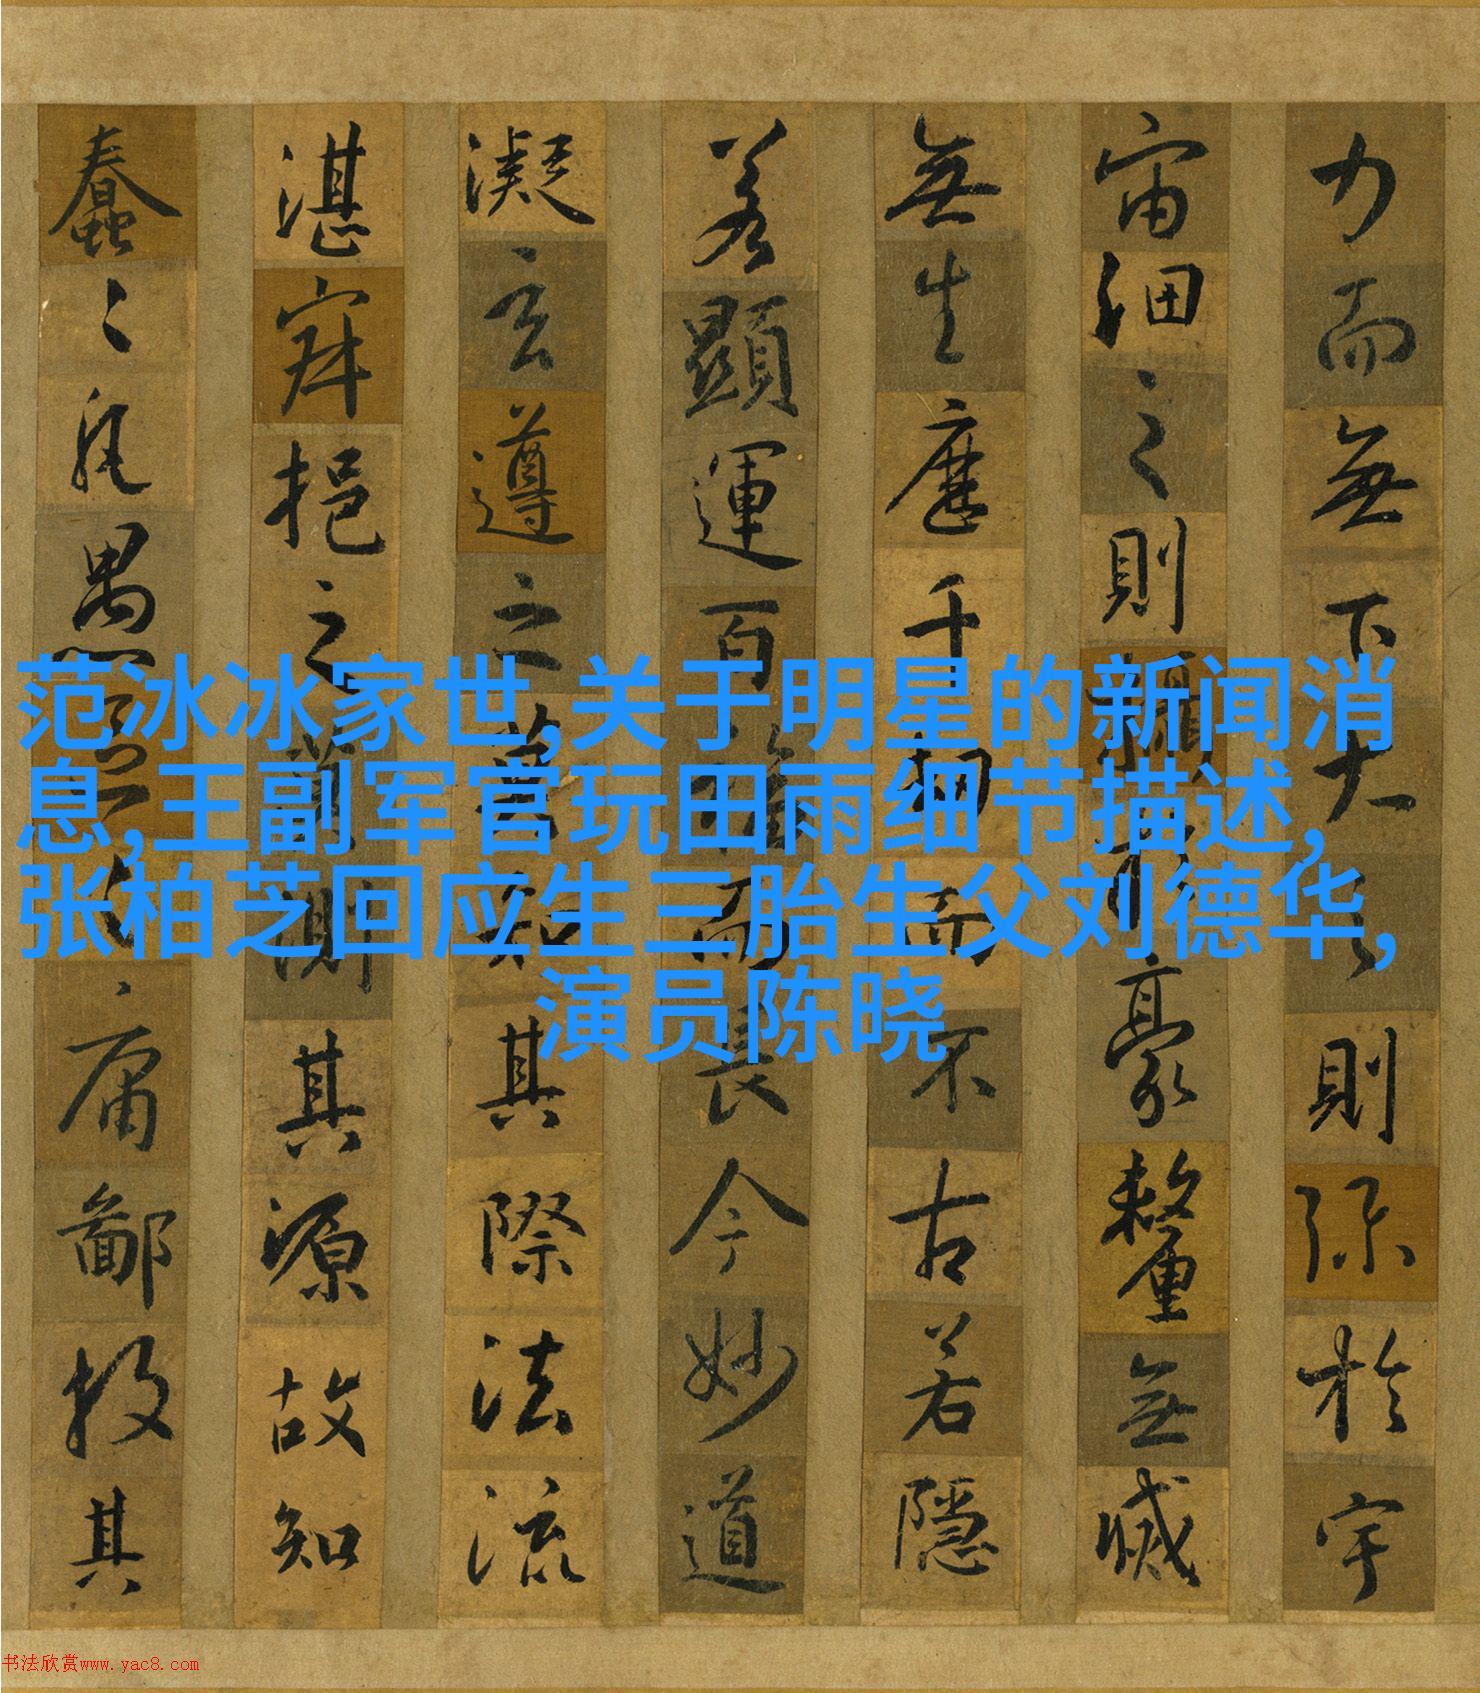 范冰冰家世,关于明星的新闻消
息,王副军官玩田雨细节描述,
张柏芝回应生三胎生父刘德华,
演员陈晓
力而無下大之則弥於宇
宙細之則攝於豪釐無滅
無生歷千劫而不古若隱
若顯運百福而長今妙道
凝玄遵之莫知其際法流
湛寂挹之莫測其源故知
蠢〻凡愚區〻庸鄙投其
书法欣赏www.yac8.com